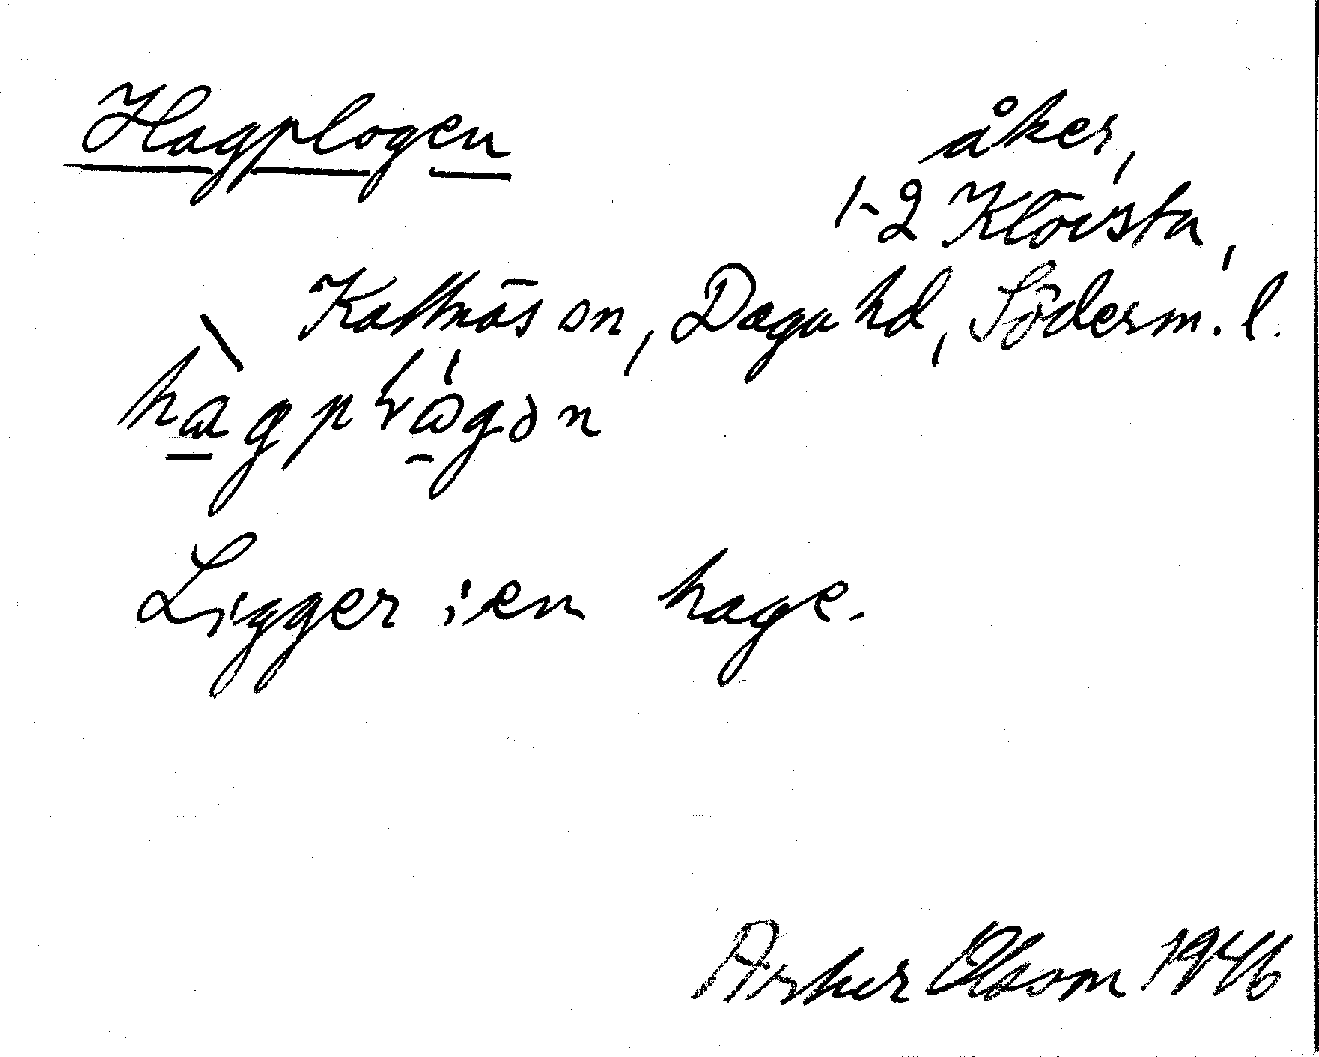 Hagplogen
åker,
1-2 Klövsta,
Kattnäs sn, Daga hd, Söderm. l.
Ligger i en hage.
Arthur Olsson 1946